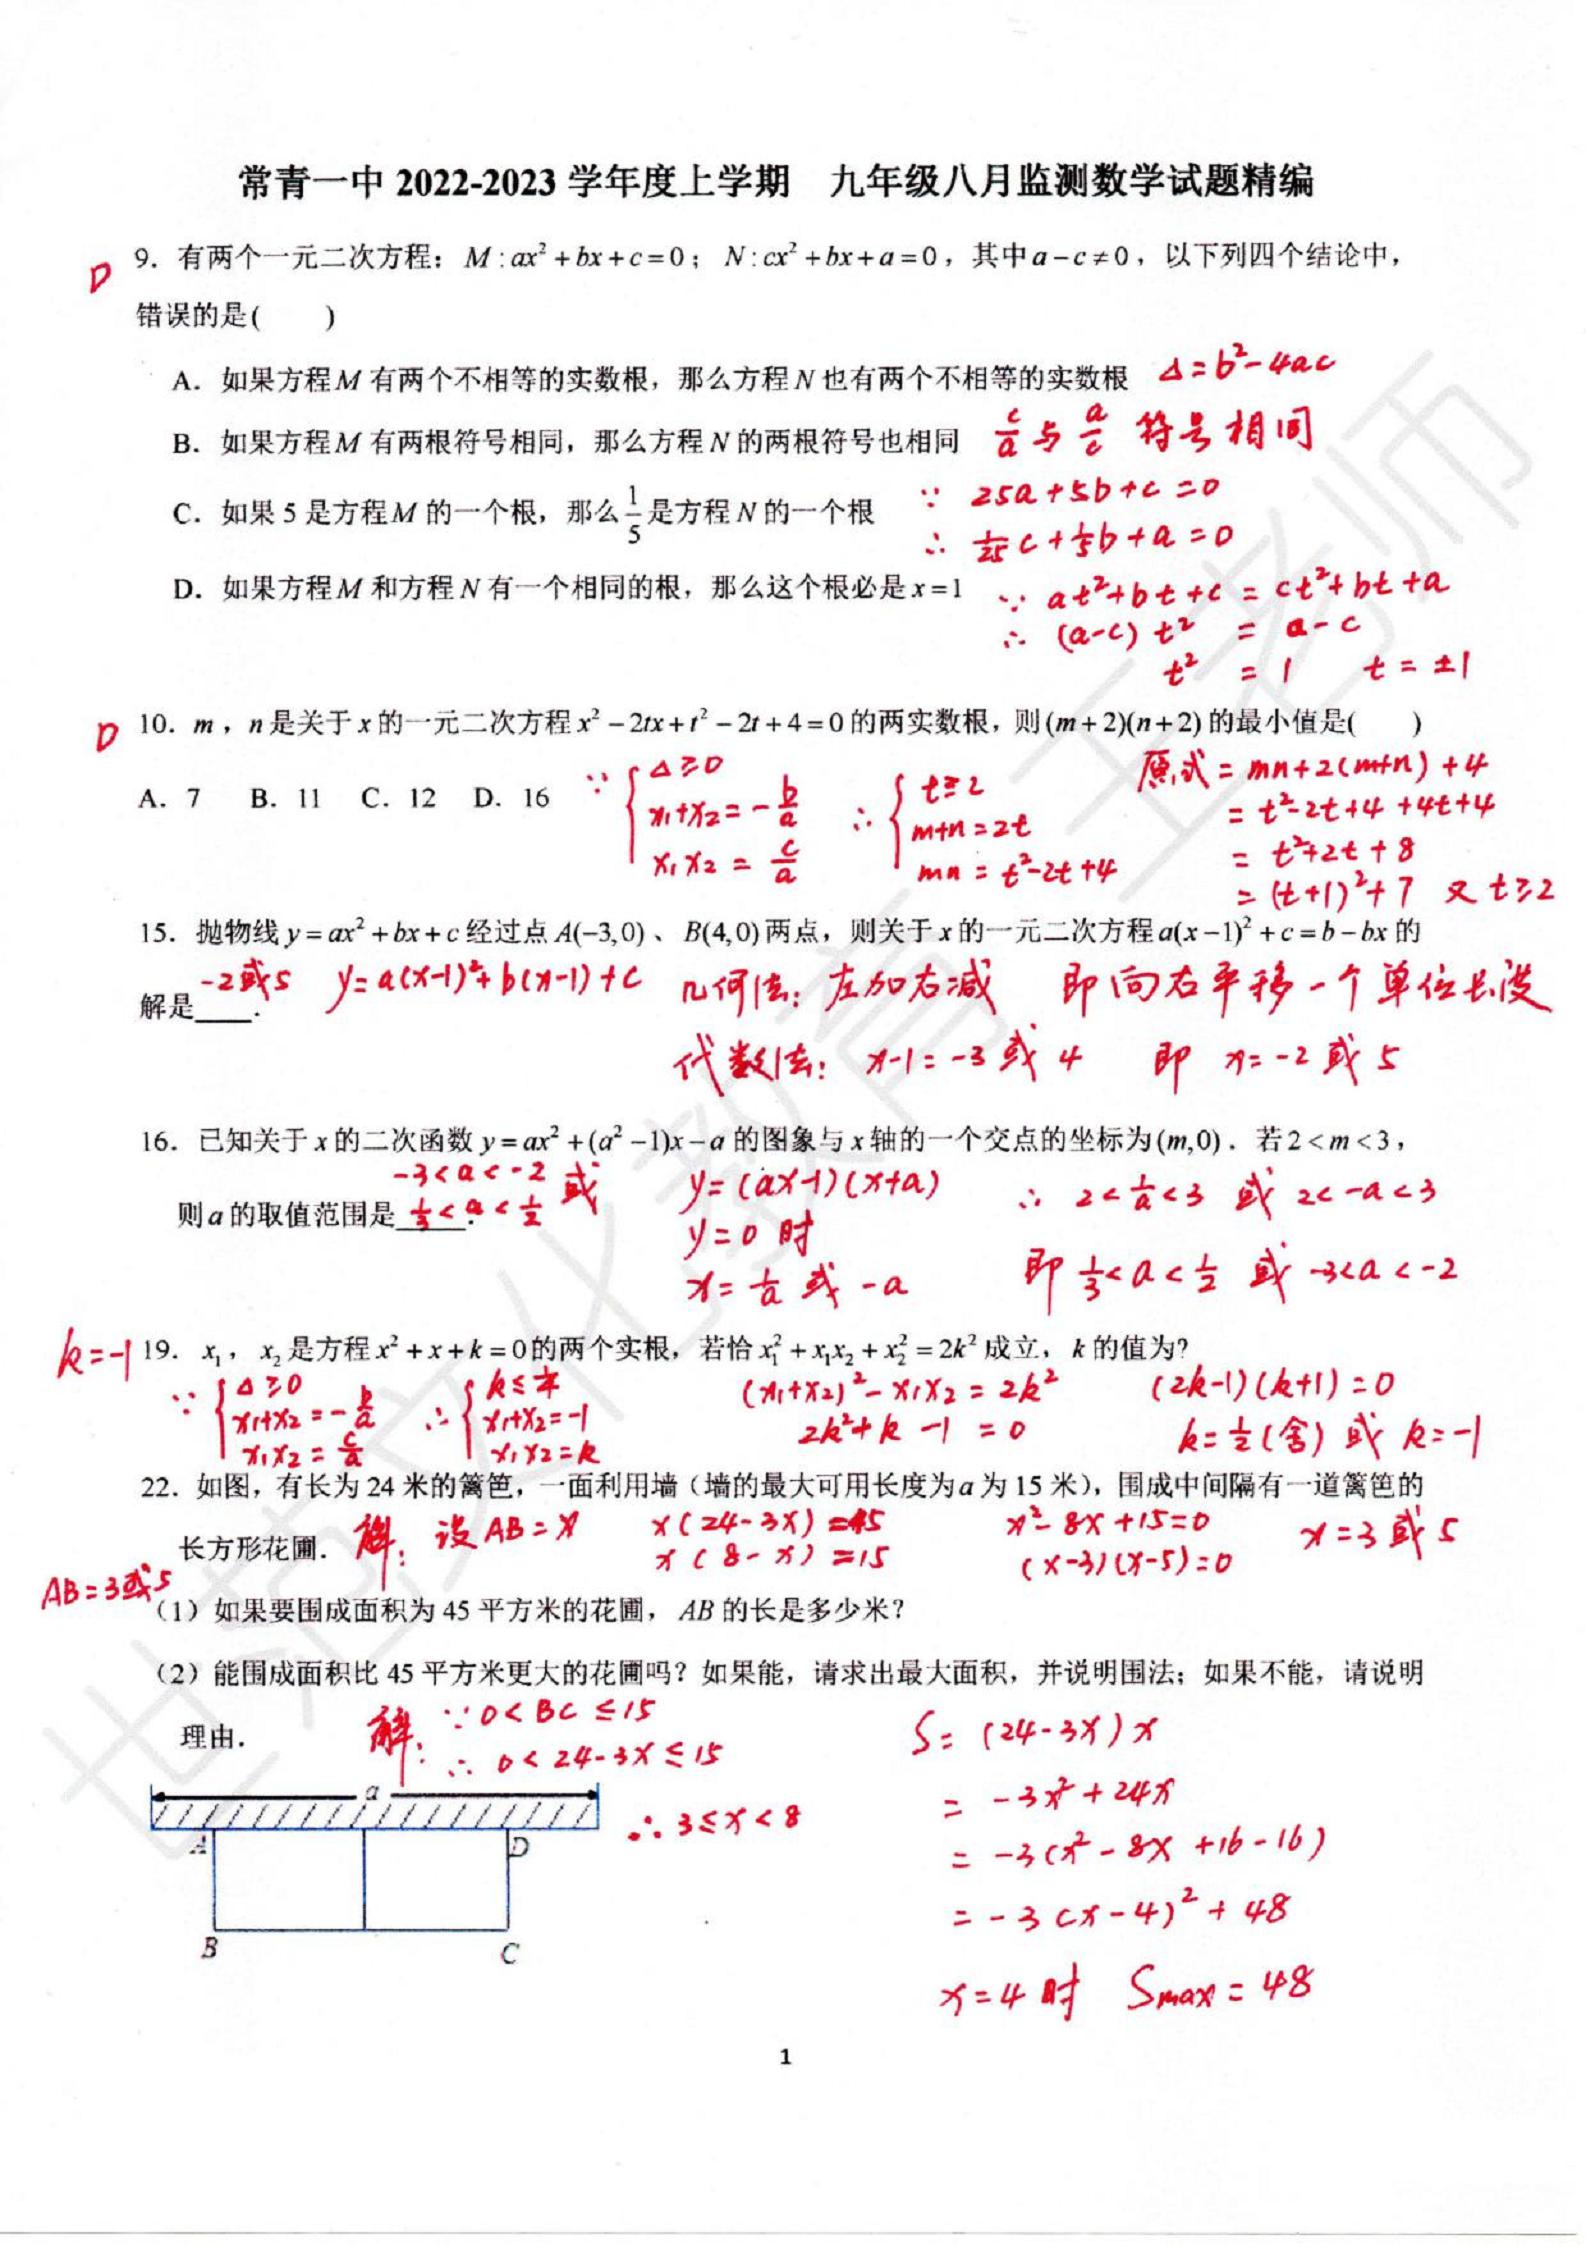 常青一中 2022-2023 学年度上学期 九年级八月监测数学试题精编
D 9．有两个一元二次方程：M : ax² + bx + c = 0；N : cx² + bx + a = 0，其中 a − c ≠ 0，以下列四个结论中，
错误的是( )
A．如果方程 M 有两个不相等的实数根，那么方程 N 也有两个不相等的实数根 Δ=b²-4ac
B．如果方程 M 有两根符号相同，那么方程 N 的两根符号也相同 c/a 与 a/c 符号相同
C．如果 5 是方程 M 的一个根，那么 1/5 是方程 N 的一个根 ∵ 25a+5b+c=0
∴ 1/25 c+1/5 b+a=0
D．如果方程 M 和方程 N 有一个相同的根，那么这个根必是 x=1 ∵ at²+bt+c = ct²+bt+a
∴ (a-c) t² = a-c
t² = 1 t = ±1
D 10．m，n 是关于 x 的一元二次方程 x² − 2tx + t² − 2t + 4 = 0 的两实数根，则 (m+2)(n+2) 的最小值是( )
A．7 B．11 C．12 D．16
∵ { Δ≥0
x₁+x₂=-b/a
x₁x₂=c/a
∴ { t≥2
m+n=2t
mn=t²-2t+4
原式=mn+2(m+n)+4
=t²-2t+4+4t+4
=t²+2t+8
=(t+1)²+7 又 t≥2
15．抛物线 y = ax² + bx + c 经过点 A(−3,0)、B(4,0) 两点，则关于 x 的一元二次方程 a(x−1)² + c = b − bx 的
解是____. -2或5 y=a(x-1)²+b(x-1)+c 几何法：左加右减 即向右平移一个单位长度
代数法：x-1=-3或4 即 x=-2或5
16．已知关于 x 的二次函数 y = ax² + (a² −1)x − a 的图象与 x 轴的一个交点的坐标为 (m,0)．若 2 < m < 3，
则 a 的取值范围是____. -3<a<-2 或 1/3<a<1/2
y=(ax-1)(x+a)
y=0 时
x=1/a 或 -a
∴ 2<1/a<3 或 2<-a<3
即 1/3<a<1/2 或 -3<a<-2
k=-1 19．x₁，x₂ 是方程 x² + x + k = 0 的两个实根，若恰 x₁² + x₁x₂ + x₂² = 2k² 成立，k 的值为?
∵ { Δ≥0
x₁+x₂=-b/a
x₁x₂=c/a
∴ { k≤1/4
x₁+x₂=-1
x₁x₂=k
(x₁+x₂)²-x₁x₂=2k²
2k²+k-1=0
(2k-1)(k+1)=0
k=1/2(舍) 或 k=-1
22．如图，有长为 24 米的篱笆，一面利用墙（墙的最大可用长度为 a 为 15 米），围成中间隔有一道篱笆的
长方形花圃．
解：设AB=x
x(24-3x)=45
x(8-x)=15
x²-8x+15=0
(x-3)(x-5)=0
x=3或5
AB=3或5
（1）如果要围成面积为 45 平方米的花圃，AB 的长是多少米？
（2）能围成面积比 45 平方米更大的花圃吗？如果能，请求出最大面积，并说明围法；如果不能，请说明
理由．
解：∵ 0<BC≤15
∴ 0<24-3x≤15
∴ 3≤x<8
S=(24-3x)x
=-3x²+24x
=-3(x²-8x+16-16)
=-3(x-4)²+48
x=4时 Smax=48
a
A D
B C
1
世范文化教育 王老师